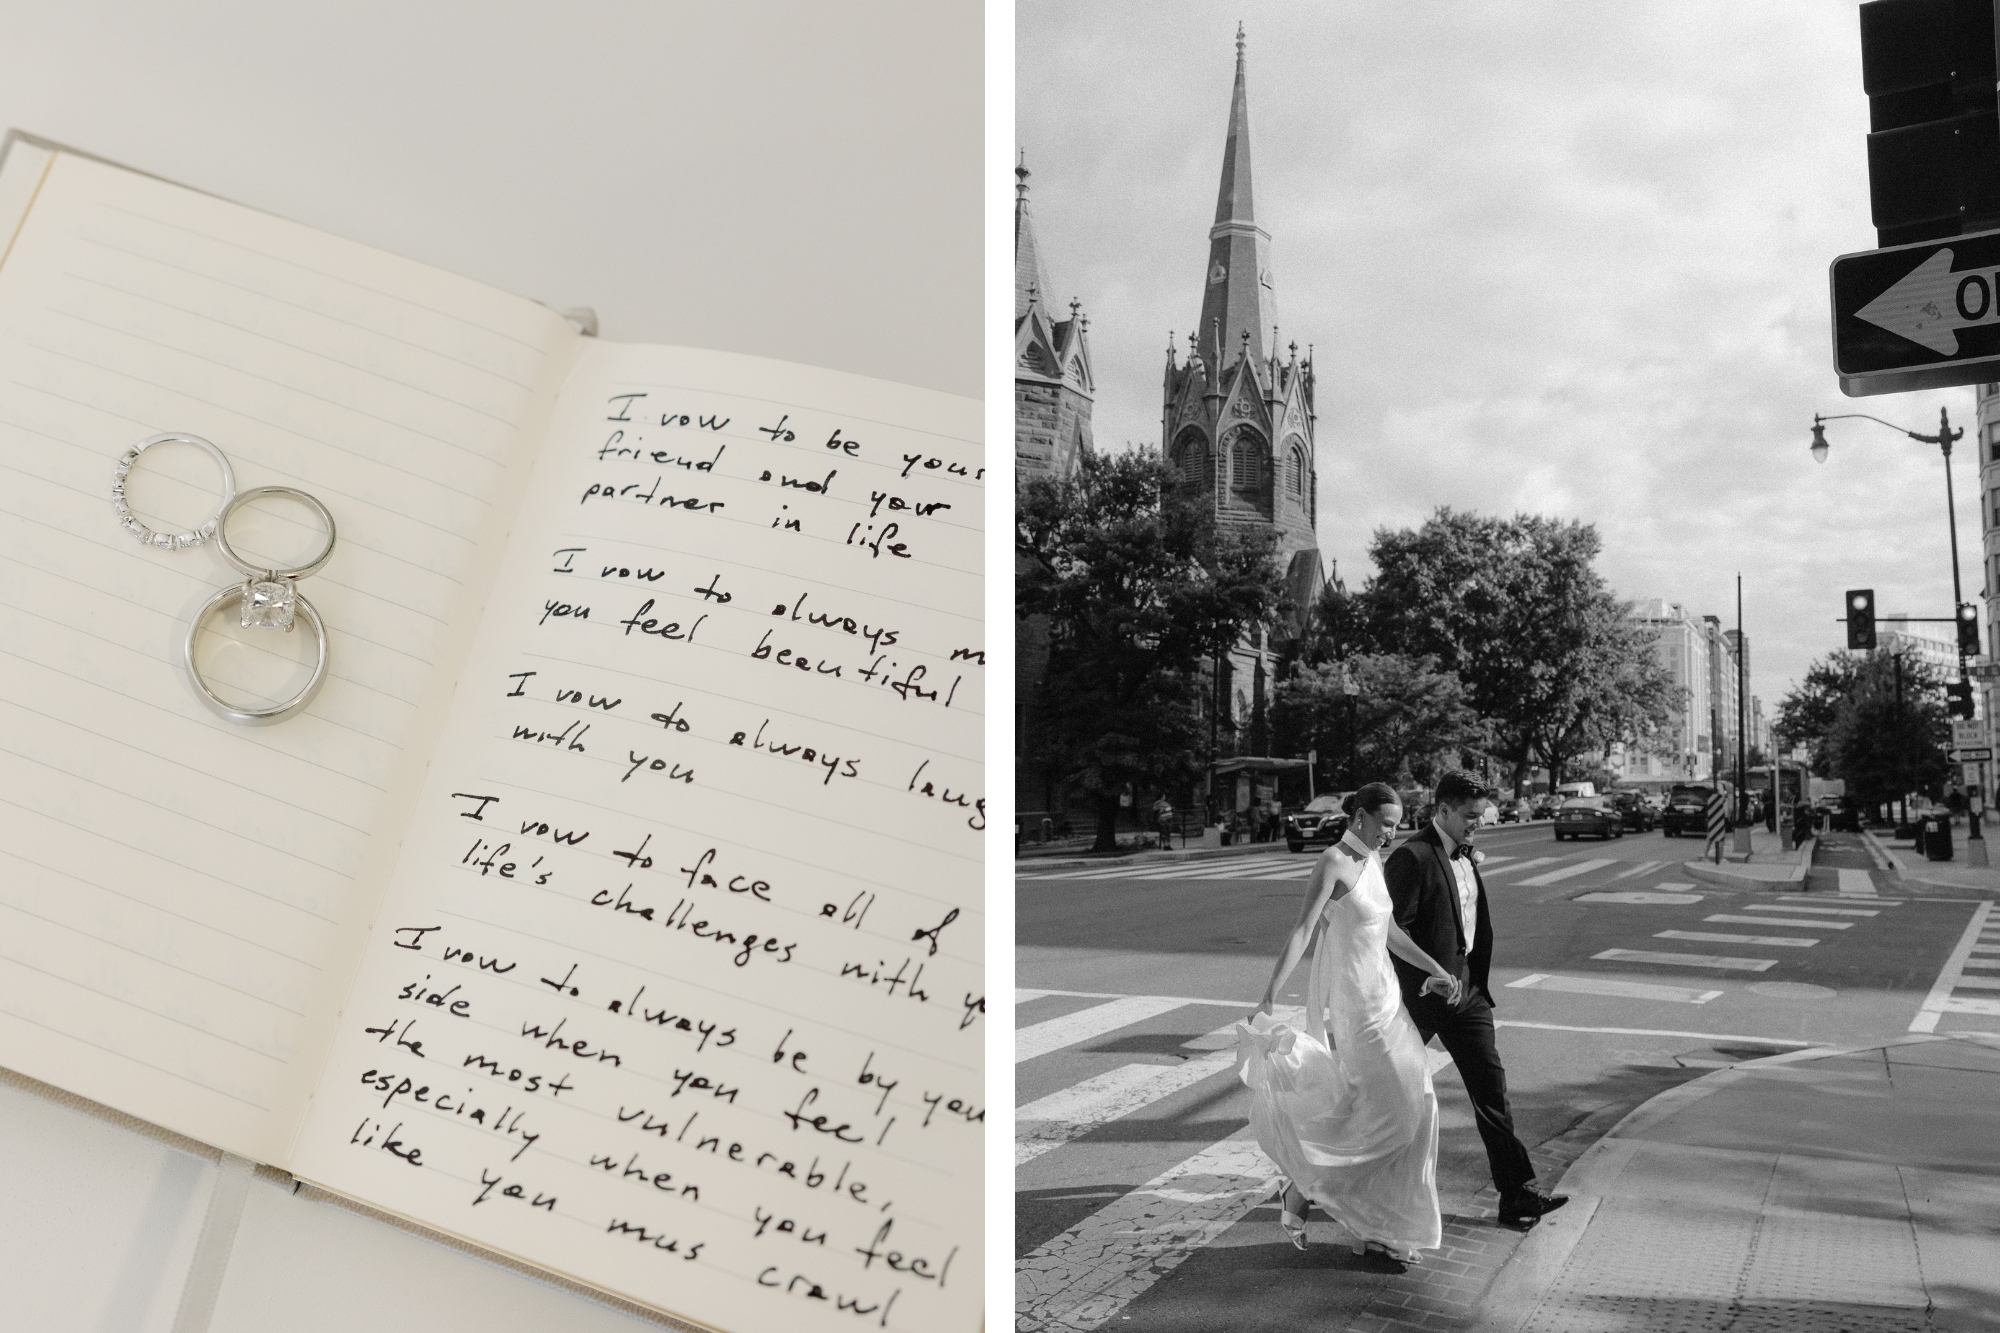 I vow to be your
friend and your
partner in life
I vow to always
you feel beautiful
I vow to always
with you
I vow to face all of
life's challenges with
I vow to always be by your
side when you feel
the most vulnerable,
especially when you feel
like you mus crawl
BLOCK